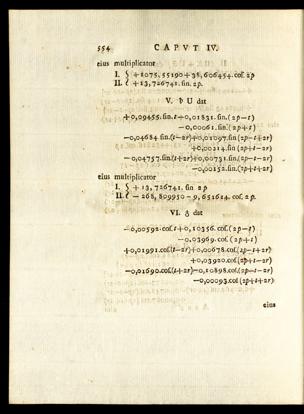 554 CAPVT IV.
eius multiplicator
I. { +1075,55190+38,606454.cos.2p
II. { +13,726741.sin.2p
V. ♄ U dat
+0,09455.sin.t+0,01831.sin.(2p−t)
−0,00061.sin.(2p+t)
−0,04684.sin.(t−2r)+0,01097.sin.(2p−t−2r)
+0,00214.sin.(2p+t−2r)
−0,04757.sin.(t+2r)+0,00731.sin.(2p−t+2r)
−0,00152.sin.(2p+t+2r)
eius multiplicator
I. { +13,726741.sin 2p
II. { −268,809950−9,651614.cos.2p.
VI. dat
−0,00592.cos.t+0,10356.cos.(2p−t)
−0,03969.cos.(2p+t)
+0,01991.cos.(t−2r)+0,00678.cos.(2p−t+2r)
+0,03920.cos.(2p+t−2r)
−0,01690.cos.(t+2r)−0,10898.cos.(2p−t−2r)
−0,00093.cos.(2p+t+2r)
eius